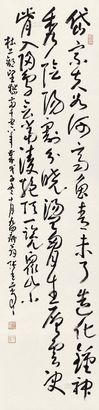 岱宗夫如何齊魯青未了造化鍾神
秀陰陽割昏曉盪胸生層雲決
眥入歸鳥會當凌絕頂一覽衆山小